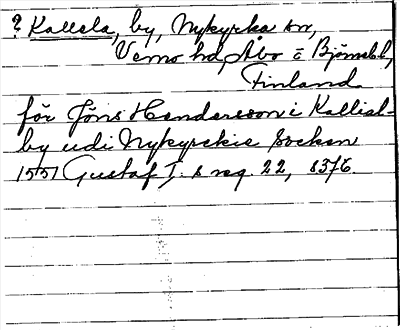 ? Kallela, by, Nykyrka sn,
Vemo hd, Åbo o Björneb. l,
Finland.
för Jöns Hendersson i Kallial-
by udi Nykyrckie Socken
1551 Gustaf I. s reg. 22, s 376.